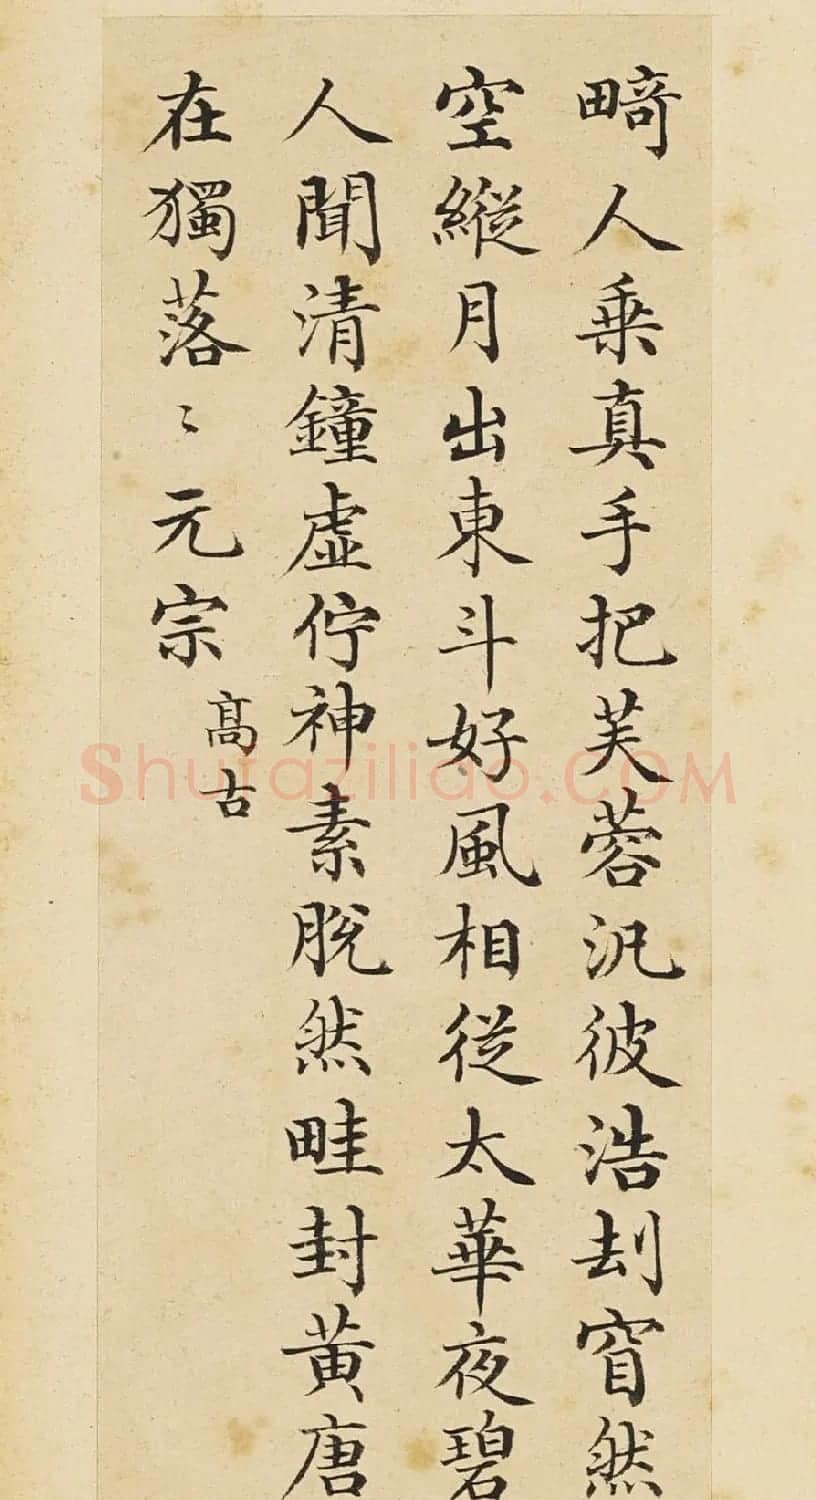 畸人乘真手把芙蓉汎彼浩刦窅然
空縱月出東斗好風相從太華夜碧
人聞清鐘虛佇神素脫然畦封黃唐
在獨落〻元宗
髙古
Shufaziliao.COM